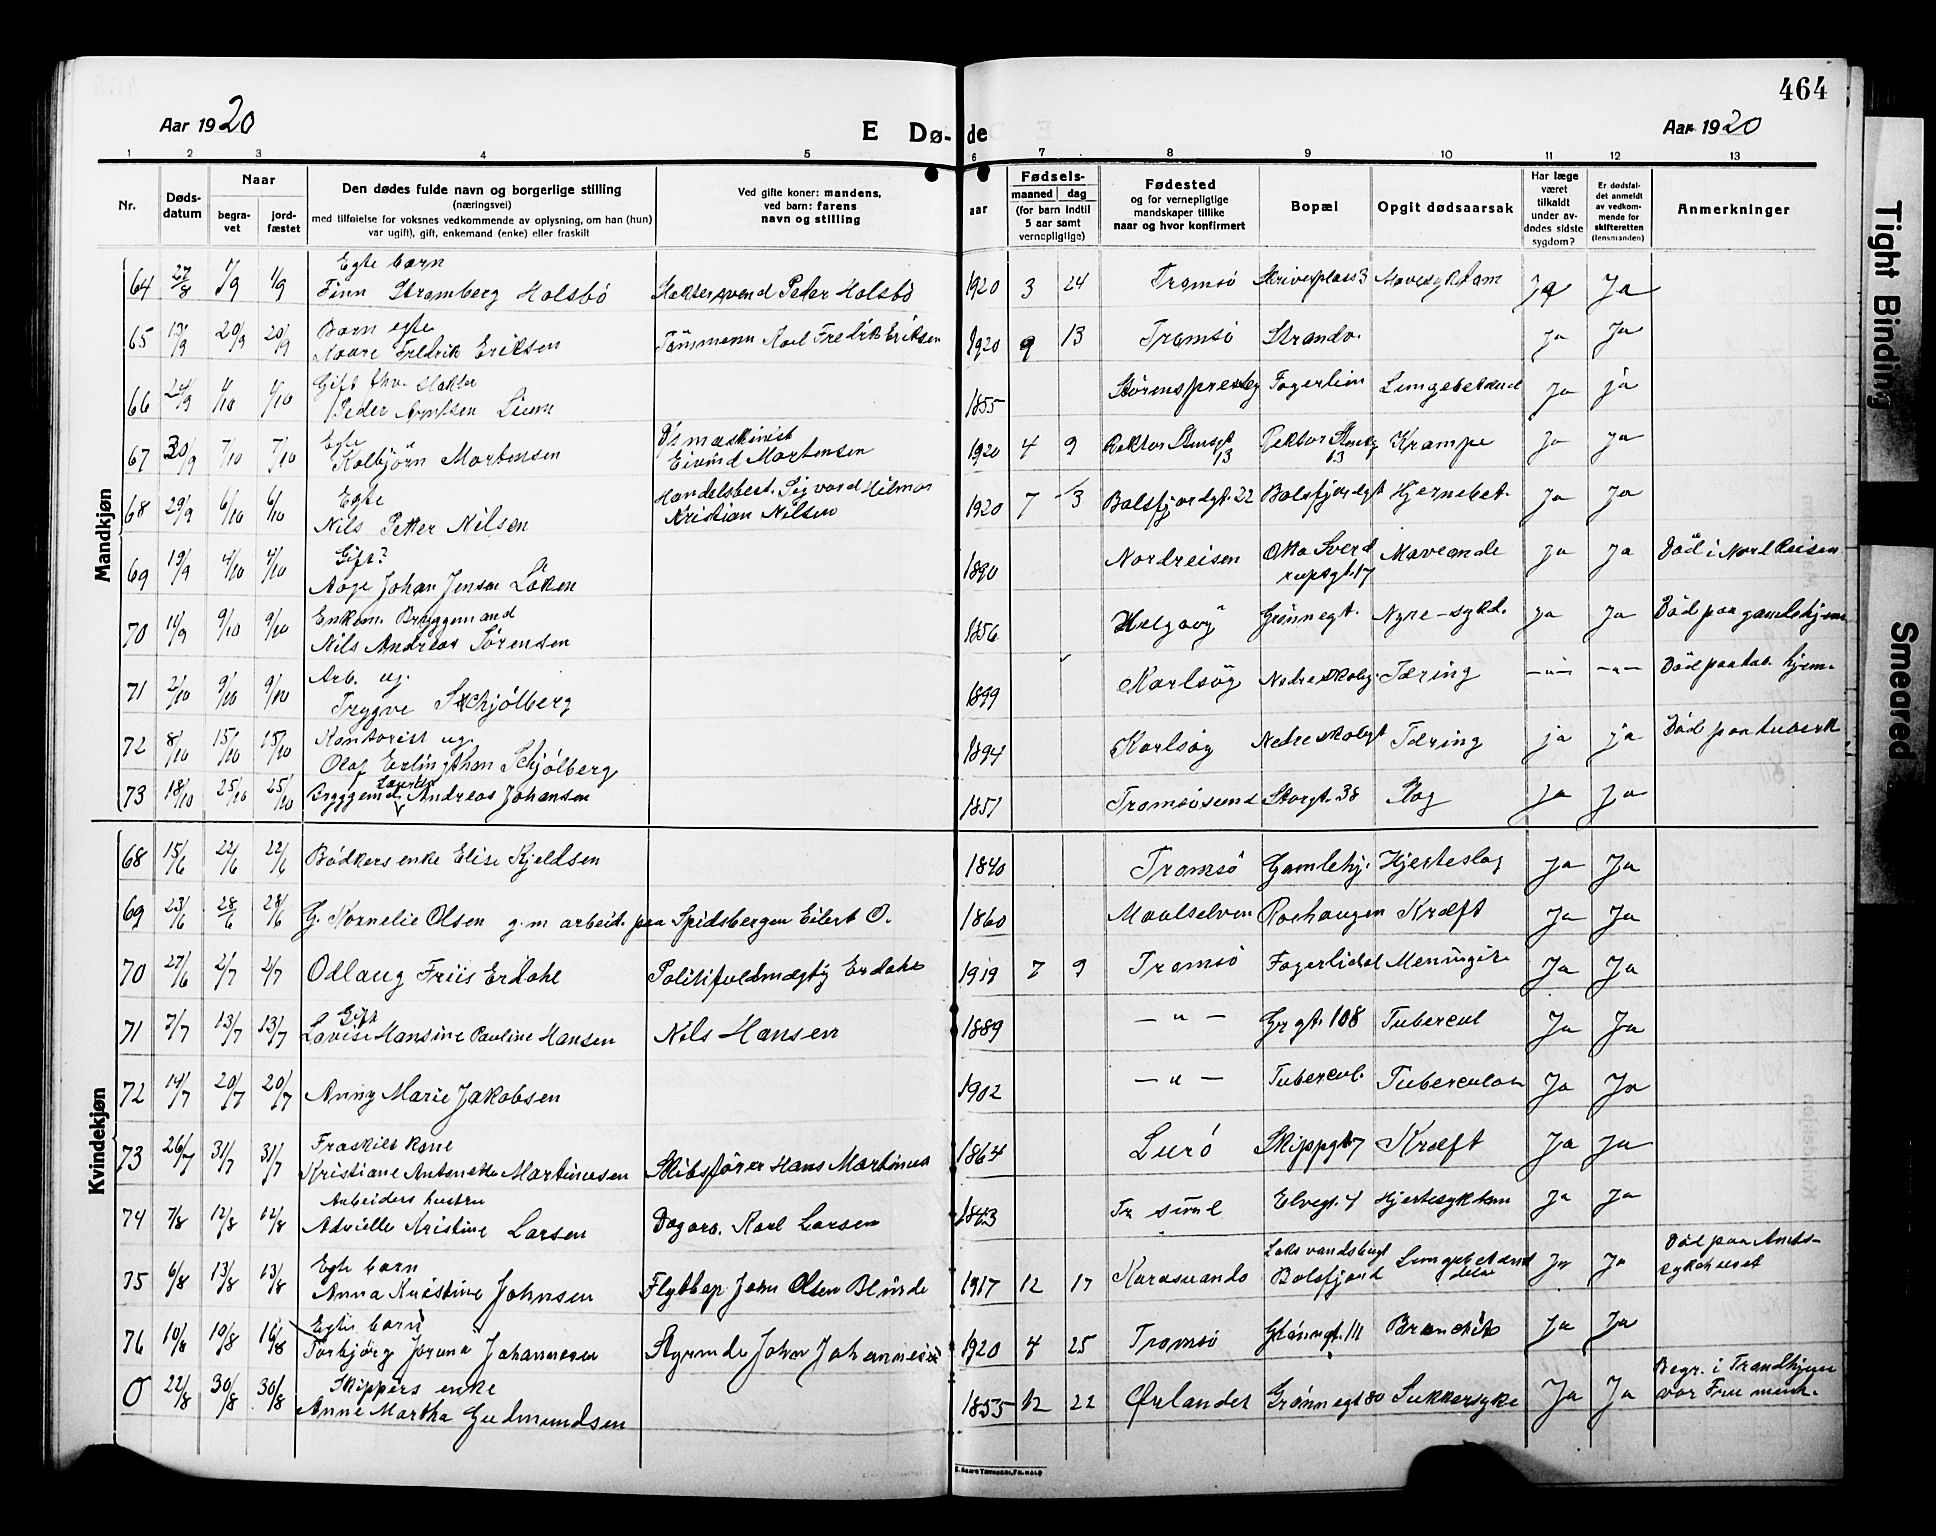 464
Aar 1920
E Dø- de
Aar 1920
1 2 3 4 5 6 7 8 9 10 11 12 13
Nr.
Døds-
datum
Naar
begra-
vet
jord-
fæstet
Den dødes fulde navn og borgerlige stilling
(næringsvei)
med tilføielse for voksnes vedkommende av oplysning, om han (hun)
var ugift), gift, enkemand (enke) eller fraskilt
Ved gifte koner: mandens,
ved barn: farens
navn og stilling
aar
Fødsels-
maaned dag
(for barn indtil
5 aar samt
vernepligtige)
Fødested
og for vernepligtige
mandskaper tillike
naar og hvor konfirmert
Bopæl
Opgit dødsaarsak
Har læge
været
tilkaldt
under av-
dødes sidste
sygdom?
Er dødsfal-
det anmeldt
av vedkom-
mende for
skifteretten
(lensmanden)
Anmerkninger
Mandkjøn
Egte barn
64 27/8 1/9 1/9 Finn Stramberg Holsbö Slaktersvend Peder Holsbö 1920 3 24 Tromsö Skriverplass 3 Mavesykdom Ja Ja
Barn egte
65 13/9 20/9 20/9 Kaare Fredrik Eriksen Tömmerm Karl Fredrik Eriksen 1920 9 13 Tromsö Strandv. ja Ja
Gift fhv. slakter
66 24/9 1/10 1/10 Peder Arntsen Lium 1855 Störens presteg Fagerlien Lungebetænd Ja ja
Egte D/s maskinist
67 30/9 7/10 7/10 Kolbjörn Mortensen Eivind Mortensen 1920 4 9 Rektor Steensgt 13 Rektor Steensg 13 Krampe Ja ja
Egte Handelsbest. Sigvard Hilmar
68 29/9 6/10 6/10 Nils Petter Nilsen Kristian Nilsen 1920 7 3 Balsfjordgt. 22 Balsfjordgt Hjernebet. Ja Ja
Gift?
69 19/9 4/10 4/10 Aage Johan Jensen Löken 1890 Nordreisen Otto Sverd
rupsgt. 17 Maveonde ja Ja Död i Nord Reisen
Enkem. Bryggemand
70 11/9 9/10 9/10 Nils Andreas Sörensen 1856 Helgöy Grönnegt. Nyre-sykd. Ja Ja Död paa gamlehjem
Arb. ug.
71 2/10 9/10 9/10 Trygve Schjölberg 1899 Karlsöy Nedre skoleg. Tæring -"- -"- Död paa tub. hjem.
Kontorist ug.
72 8/10 15/10 15/10 Olaf Erling Than Schjölberg 1894 Karlsöy Nedre skolegt Tæring ja ja Död paa tuberk
73 18/10 25/10 25/10 Bryggemd Lauritz Andreas Johansen 1851 Tromsösund Storgt. 38 Slag ja ja
Kvindekjøn
68 15/6 22/6 22/6 Bödkers enke Elise Kjeldsen 1840 Tromsö Gamlehj. Hjerteslag Ja Ja
69 23/6 28/6 28/6 G. Kornelie Olsen g. m arbeid. paa Spidsbergen Eilert O. 1860 Maalselven Kræft Ja Ja
70 27/6 2/7 2/7 Odlaug Friis Erdahl Politifuldmægtig Erdahl 1919 7 9 Tromsö Fagerlidal Meningite Ja Ja
Gift
71 7/7 13/7 13/7 Lovise Hansine Pauline Hansen Nils Hansen 1889 -"- Grgt. 108 Tubercul Ja Ja
72 14/7 20/7 20/7 Anny Marie Jakobsen 1902 -"- Tubercul. Tuberculose Ja Ja
Fraskilt kone
73 26/7 31/7 31/7 Kristiane Antonette Martinusen Skibsförer Hans Martinus 1864 Lurö Skippgt 7 Kræft Ja Ja
Arbeiders hustru
74 7/8 12/8 12/8 Kristine Larsen Dagarb. Karl Larsen 1843 Tr sund Elvegt. 4 Hjertesykdom Ja Ja
Egte barn
75 6/8 13/8 13/8 Anna Kristine Johnsen Flytlap John Olsen Blinde 1917 12 17 Karasuando Balsfjord Lungebetænd
delse Ja Ja Död paa Amts-
sykehuset
Egte barn
76 10/8 19/8 16/8 Torbjörg Jorunn Johannesen Styrmds John Johannesen 1920 4 25 Tromsö Grönnegt. 111 Bronchit Ja Ja
Skippers enke
0 22/8 30/8 30/8 Anne Martha Gudmundsen 1855 12 22 Ørlandet Grönnegt 80 Sukkersyke Ja Ja Begr. i Trondhjem
var Frue menh.
Tight Binding
Smeared